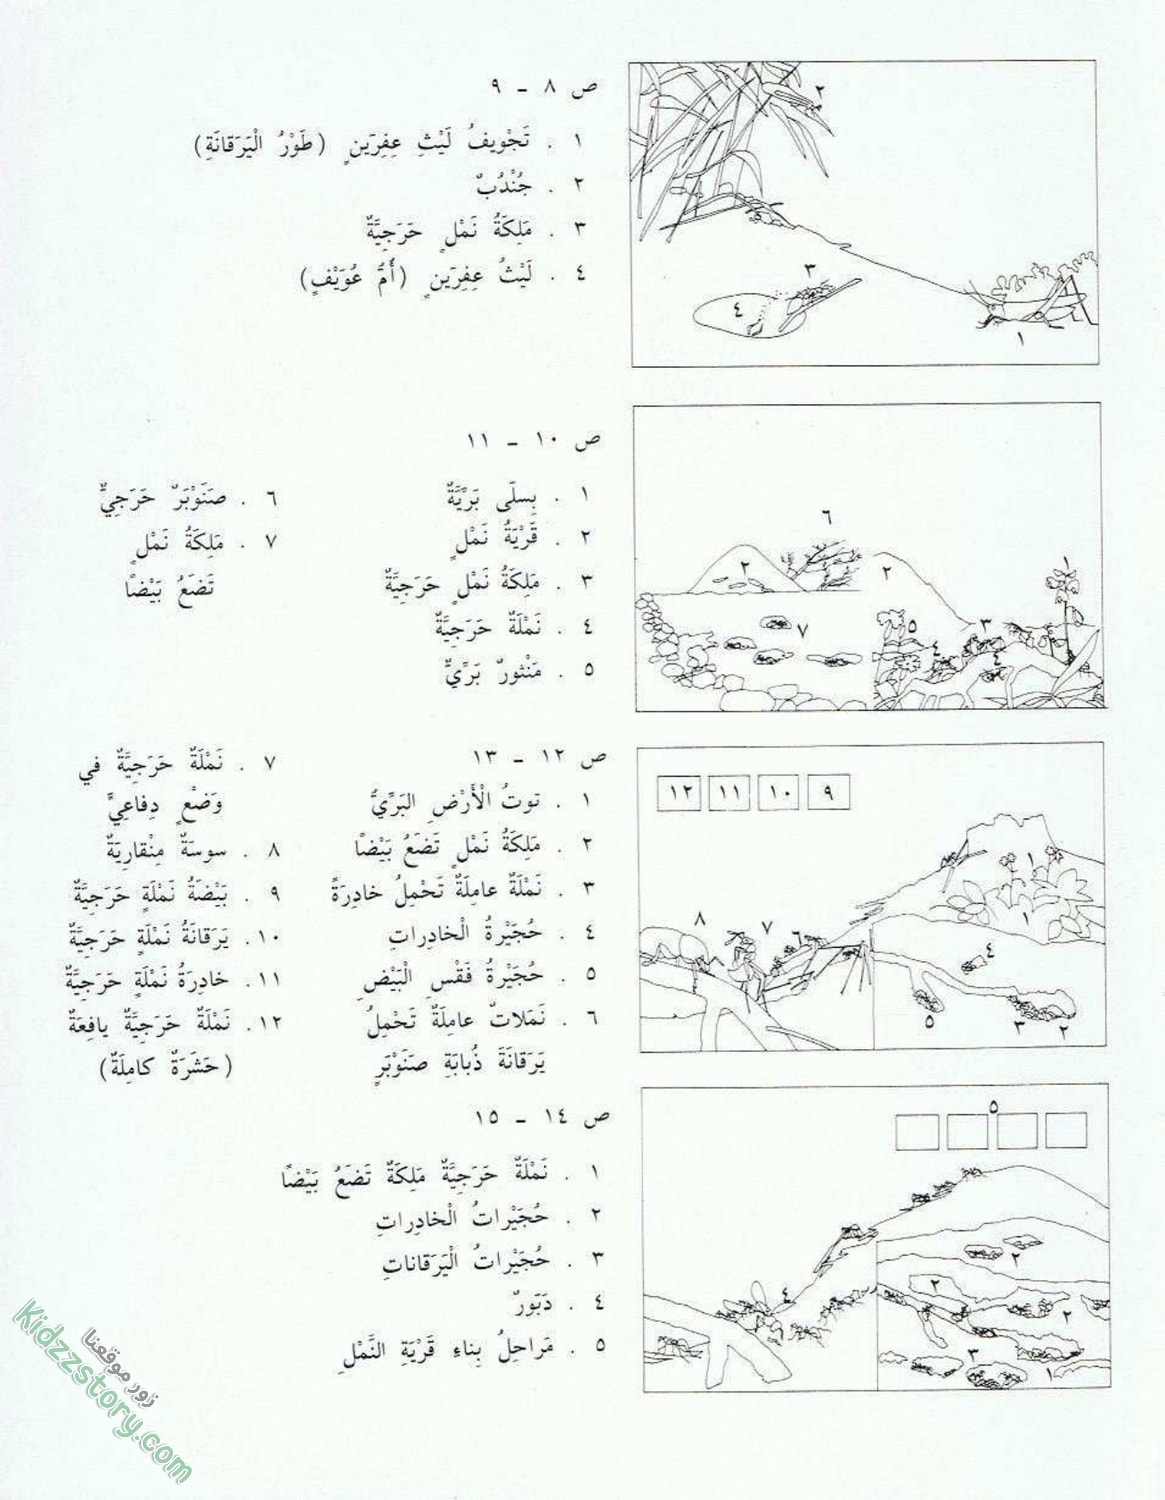 ص ٨ - ٩
١ . تَجْويفُ لَيْثِ عِفِرّينٍ (طَوْرُ الْيَرَقانَةِ)
٢ . جُنْدُبٌ
٣ . مَلِكَةُ نَمْلٍ حَرَجِيَّةٌ
٤ . لَيْثُ عِفِرّينٍ (أُمُّ عُوَيْفٍ)
٢
٣
٤
١
ص ١٠ - ١١
١ . بِسلّى بَرِّيَّةٌ
٢ . قَرْيَةُ نَمْلٍ
٣ . مَلِكَةُ نَمْلٍ حَرَجِيَّةٌ
٤ . نَمْلَةٌ حَرَجِيَّةٌ
٥ . مَنْثورٌ بَرِّيٌّ
٦ . صَنَوْبَرٌ حَرَجِيٌّ
٧ . مَلِكَةُ نَمْلٍ
تَضَعُ بَيْضًا
٦
١
٢
٢
٥
٣
٧
٤
٤
ص ١٢ - ١٣
١ . توتُ الْأَرْضِ البَرِّيُّ
٢ . مَلِكَةُ نَمْلٍ تَضَعُ بَيْضًا
٣ . نَمْلَةٌ عامِلَةٌ تَحْمِلُ خادِرَةً
٤ . حُجَيْرةُ الْخادِراتِ
٥ . حُجَيْرةُ فَقْسِ الْبَيْضِ
٦ . نَمَلاتٌ عامِلَةٌ تَحْمِلُ
يَرَقانَةَ ذُبابَةِ صَنَوْبَرٍ
٧ . نَمْلَةٌ حَرَجِيَّةٌ في
وَضْعٍ دِفاعِيٍّ
٨ . سوسَةٌ مِنْقارِيَةٌ
٩ . بَيْضَةُ نَمْلَةٍ حَرَجِيَّةٌ
١٠. يَرَقانَةُ نَمْلَةٍ حَرَجِيَّةٌ
١١. خادِرَةُ نَمْلَةٍ حَرَجِيَّةٌ
١٢. نَمْلَةٌ حَرَجِيَّةٌ يافِعَةٌ
(حَشَرَةٌ كامِلَةٌ)
٩ ١٠ ١١ ١٢
١
١
٨
٧
٦
٤
٥
٣
٢
ص ١٤ - ١٥
١ . نَمْلَةٌ حَرَجِيَّةٌ مَلِكَةٌ تَضَعُ بَيْضًا
٢ . حُجَيْراتُ الْخادِراتِ
٣ . حُجَيْراتُ الْيَرَقاناتِ
٤ . دَبّورٌ
٥ . مَراحِلُ بِناءِ قَرْيَةِ النَّمْلِ
٥
٢
٢
٢
٤
٣
١
زوروا موقعنا
Kidzzstory.com